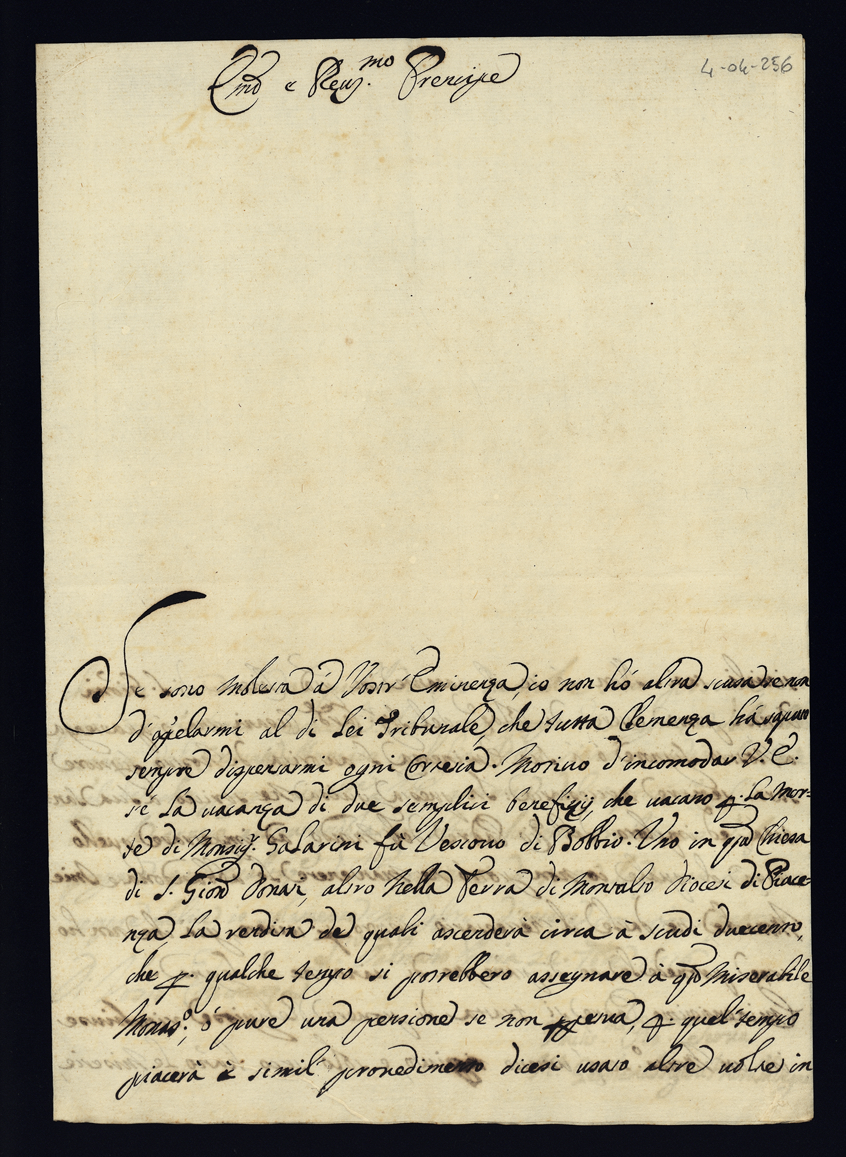 Em̃o e Reu.mo Prencipe
4-04-256
Se sono molesta à Vostr' Eminenza, io non hò altra scusa se non
d'appelarmi al di Lei Tribunale, che tutta Clemenza hà saputo
sempre dispensarmi ogni Cortesia. Motivo d'incomodar V. E.
si è La vacanza di due semplici benefizij, che vacano p. La Mor-
te di Monsig.r Galarini fù Vescouo di Bobbio. Uno in q̃sta Chiesa
di S. Gio: Donas, altro nella Terra di Montalbo Diocesi di Piace-
nza, La rendita de quali ascenderà circa à scudi ducento,
che p. qualche tempo si potrebbero assegnare à q̃sto Miserabile
Monas.o, ò pure una pensione se non ppetua, p. quel tempo
piacerà è simil prouedimento dicesi usato altre uolte in